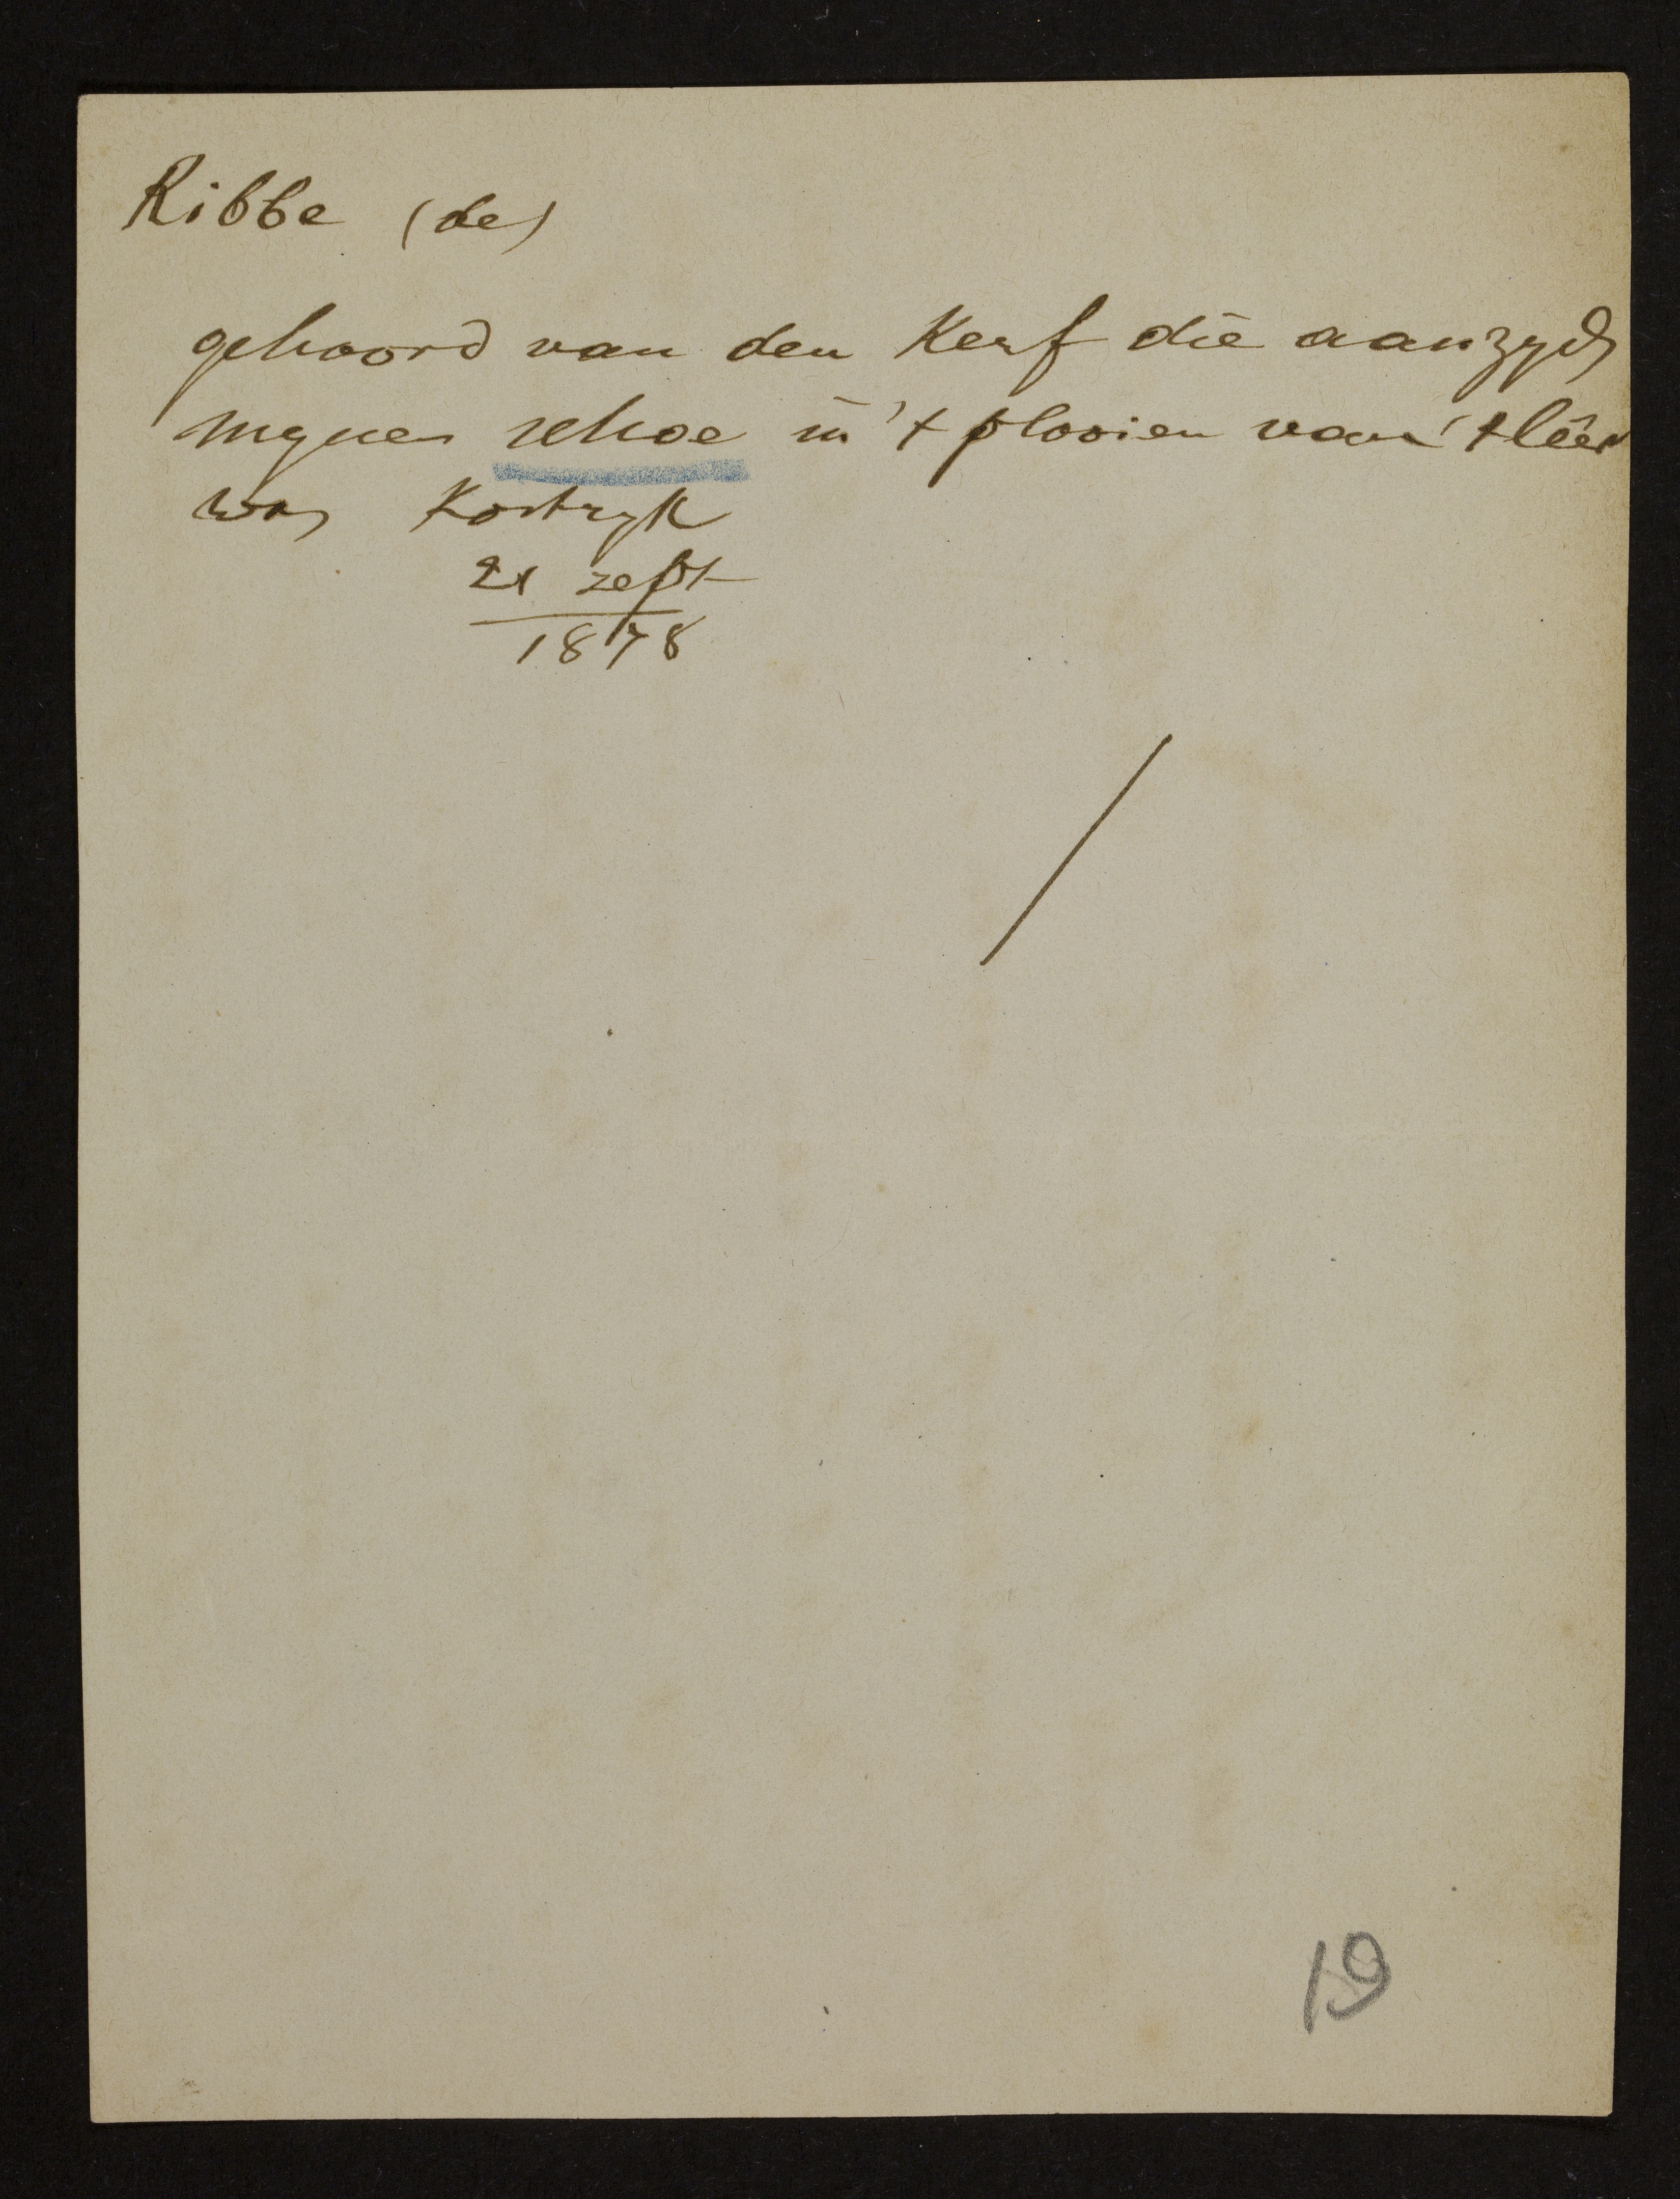 Ribbe (de)
gehoord van den Kerf die aan zyds
mynen schoe in 't plooien van 't leer
was Kortryk
21 zept
1878
19